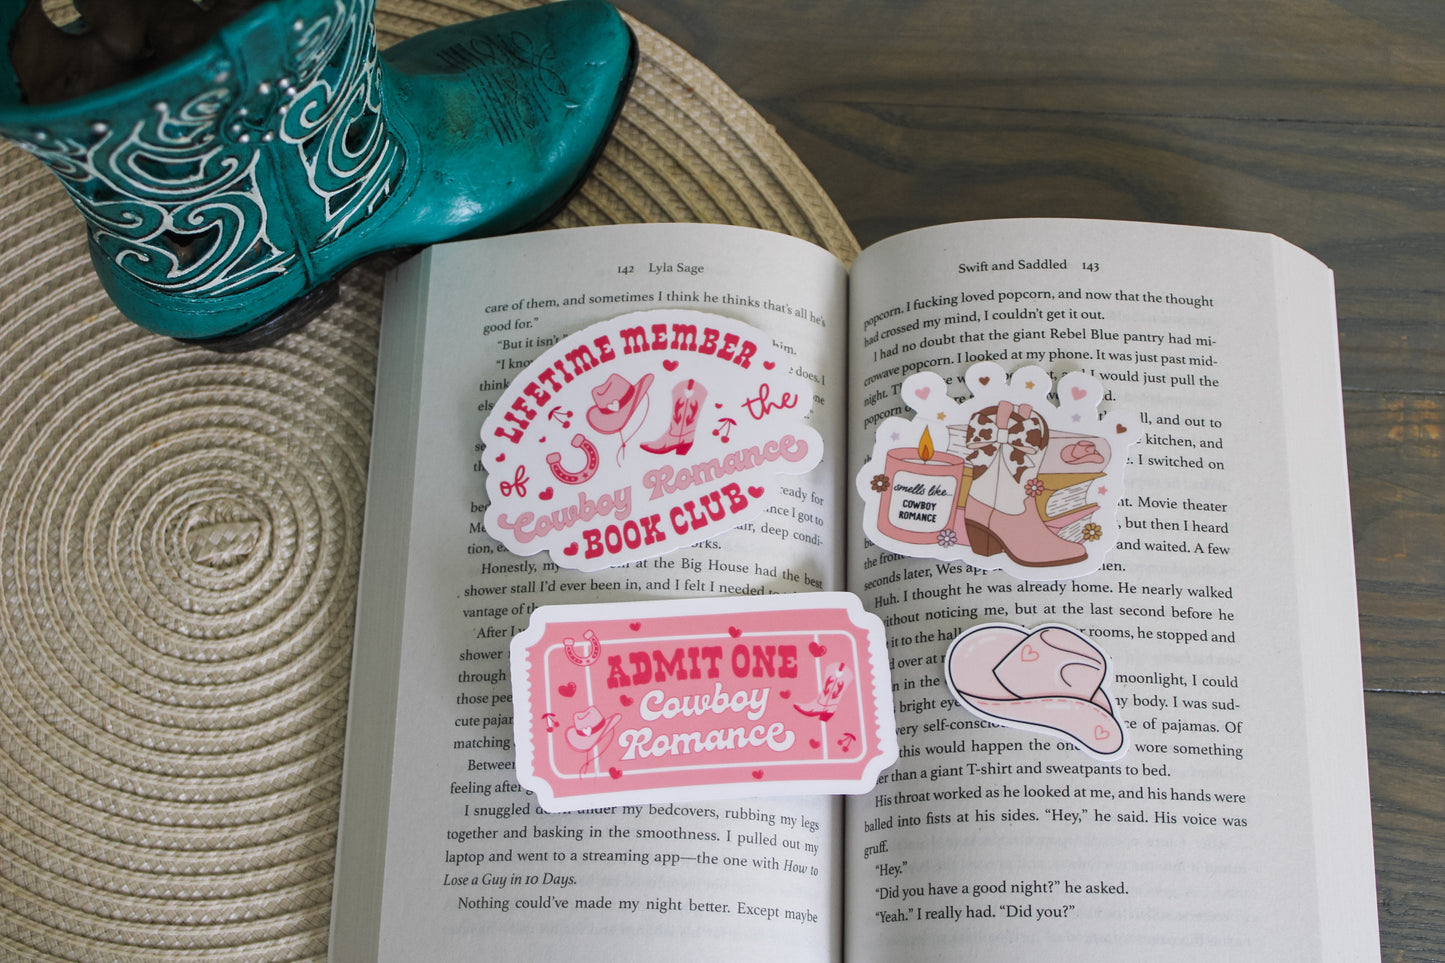 142 Lyla Sage
care of them, and sometimes I think he thinks that's all he's
good for."
"But it isn't
him.
"I know
does. I
think
LIFETIME MEMBER
of the
Cowboy Romance
BOOK CLUB
ready for
since I got to
hair, deep condi-
tion,
Honestly, my at the Big House had the best
shower stall I'd ever been in, and I felt I needed to
vantage of
After I
shower
through
those
cute
matching
Between
feeling after
ADMIT ONE
Cowboy
Romance
I snuggled down under my bedcovers, rubbing my legs
together and basking in the smoothness. I pulled out my
laptop and went to a streaming app—the one with How to
Lose a Guy in 10 Days.
Nothing could've made my night better. Except maybe
Swift and Saddled 143
popcorn. I fucking loved popcorn, and now that the thought
had crossed my mind, I couldn't get it out.
I had no doubt that the giant Rebel Blue pantry had mi-
crowave popcorn. I looked at my phone. It was just past mid-
night. and I would just pull the
popcorn
and out to
kitchen, and
I switched on
Movie theater
but then I heard
and waited. A few
smells like...
COWBOY
ROMANCE
the front
seconds later, Wes
Huh. I thought he was already home. He nearly walked
without noticing me, but at the last second before he
it to the hall rooms, he stopped and
over at
in the moonlight, I could
bright my body. I was sud-
very of pajamas. Of
this would happen the one wore something
than a giant T-shirt and sweatpants to bed.
His throat worked as he looked at me, and his hands were
balled into fists at his sides. "Hey," he said. His voice was
gruff.
"Hey."
"Did you have a good night?" he asked.
"Yeah." I really had. "Did you?"